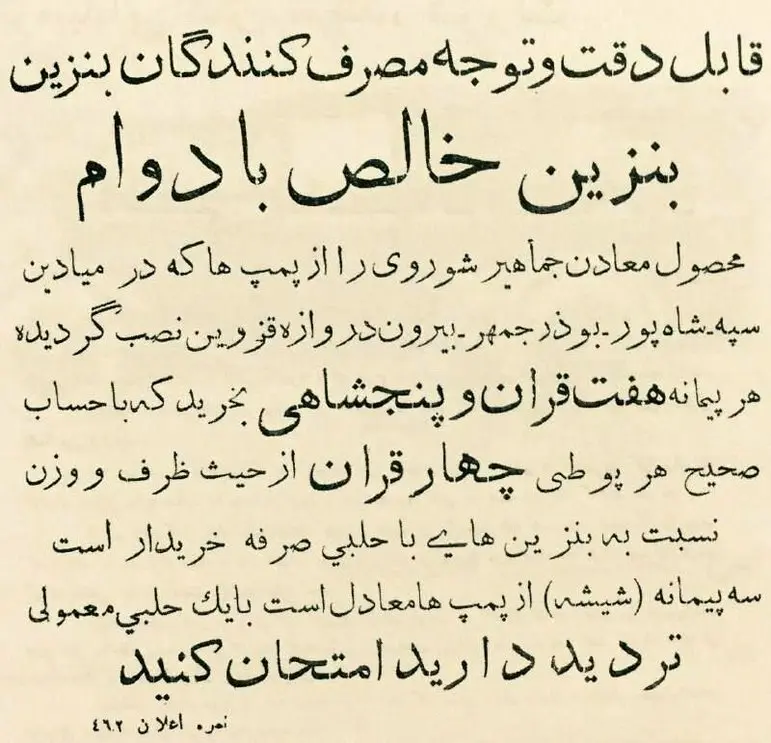 قابل دقت و توجه مصرف کنندگان بنزین
بنزین خالص بادوام
محصول معادن جماهیر شوروی را از پمپ ها که در میادین
سپه ـ شاه پور ـ بوذرجمهر ـ بیرون دروازه قزوین نصب گردیده
هر پیمانه هفت قران و پنجشاهی بخرید که با حساب
صحیح هر پوطی چهار قران از حیث ظرف و وزن
نسبت به بنزین هایے با حلبي صرفه خریدار است
سه پیمانه (شیشه) از پمپ ها معادل است با یك حلبي معمولی
تردید دارید امتحان کنید
نمره اعلان ٤٦٢